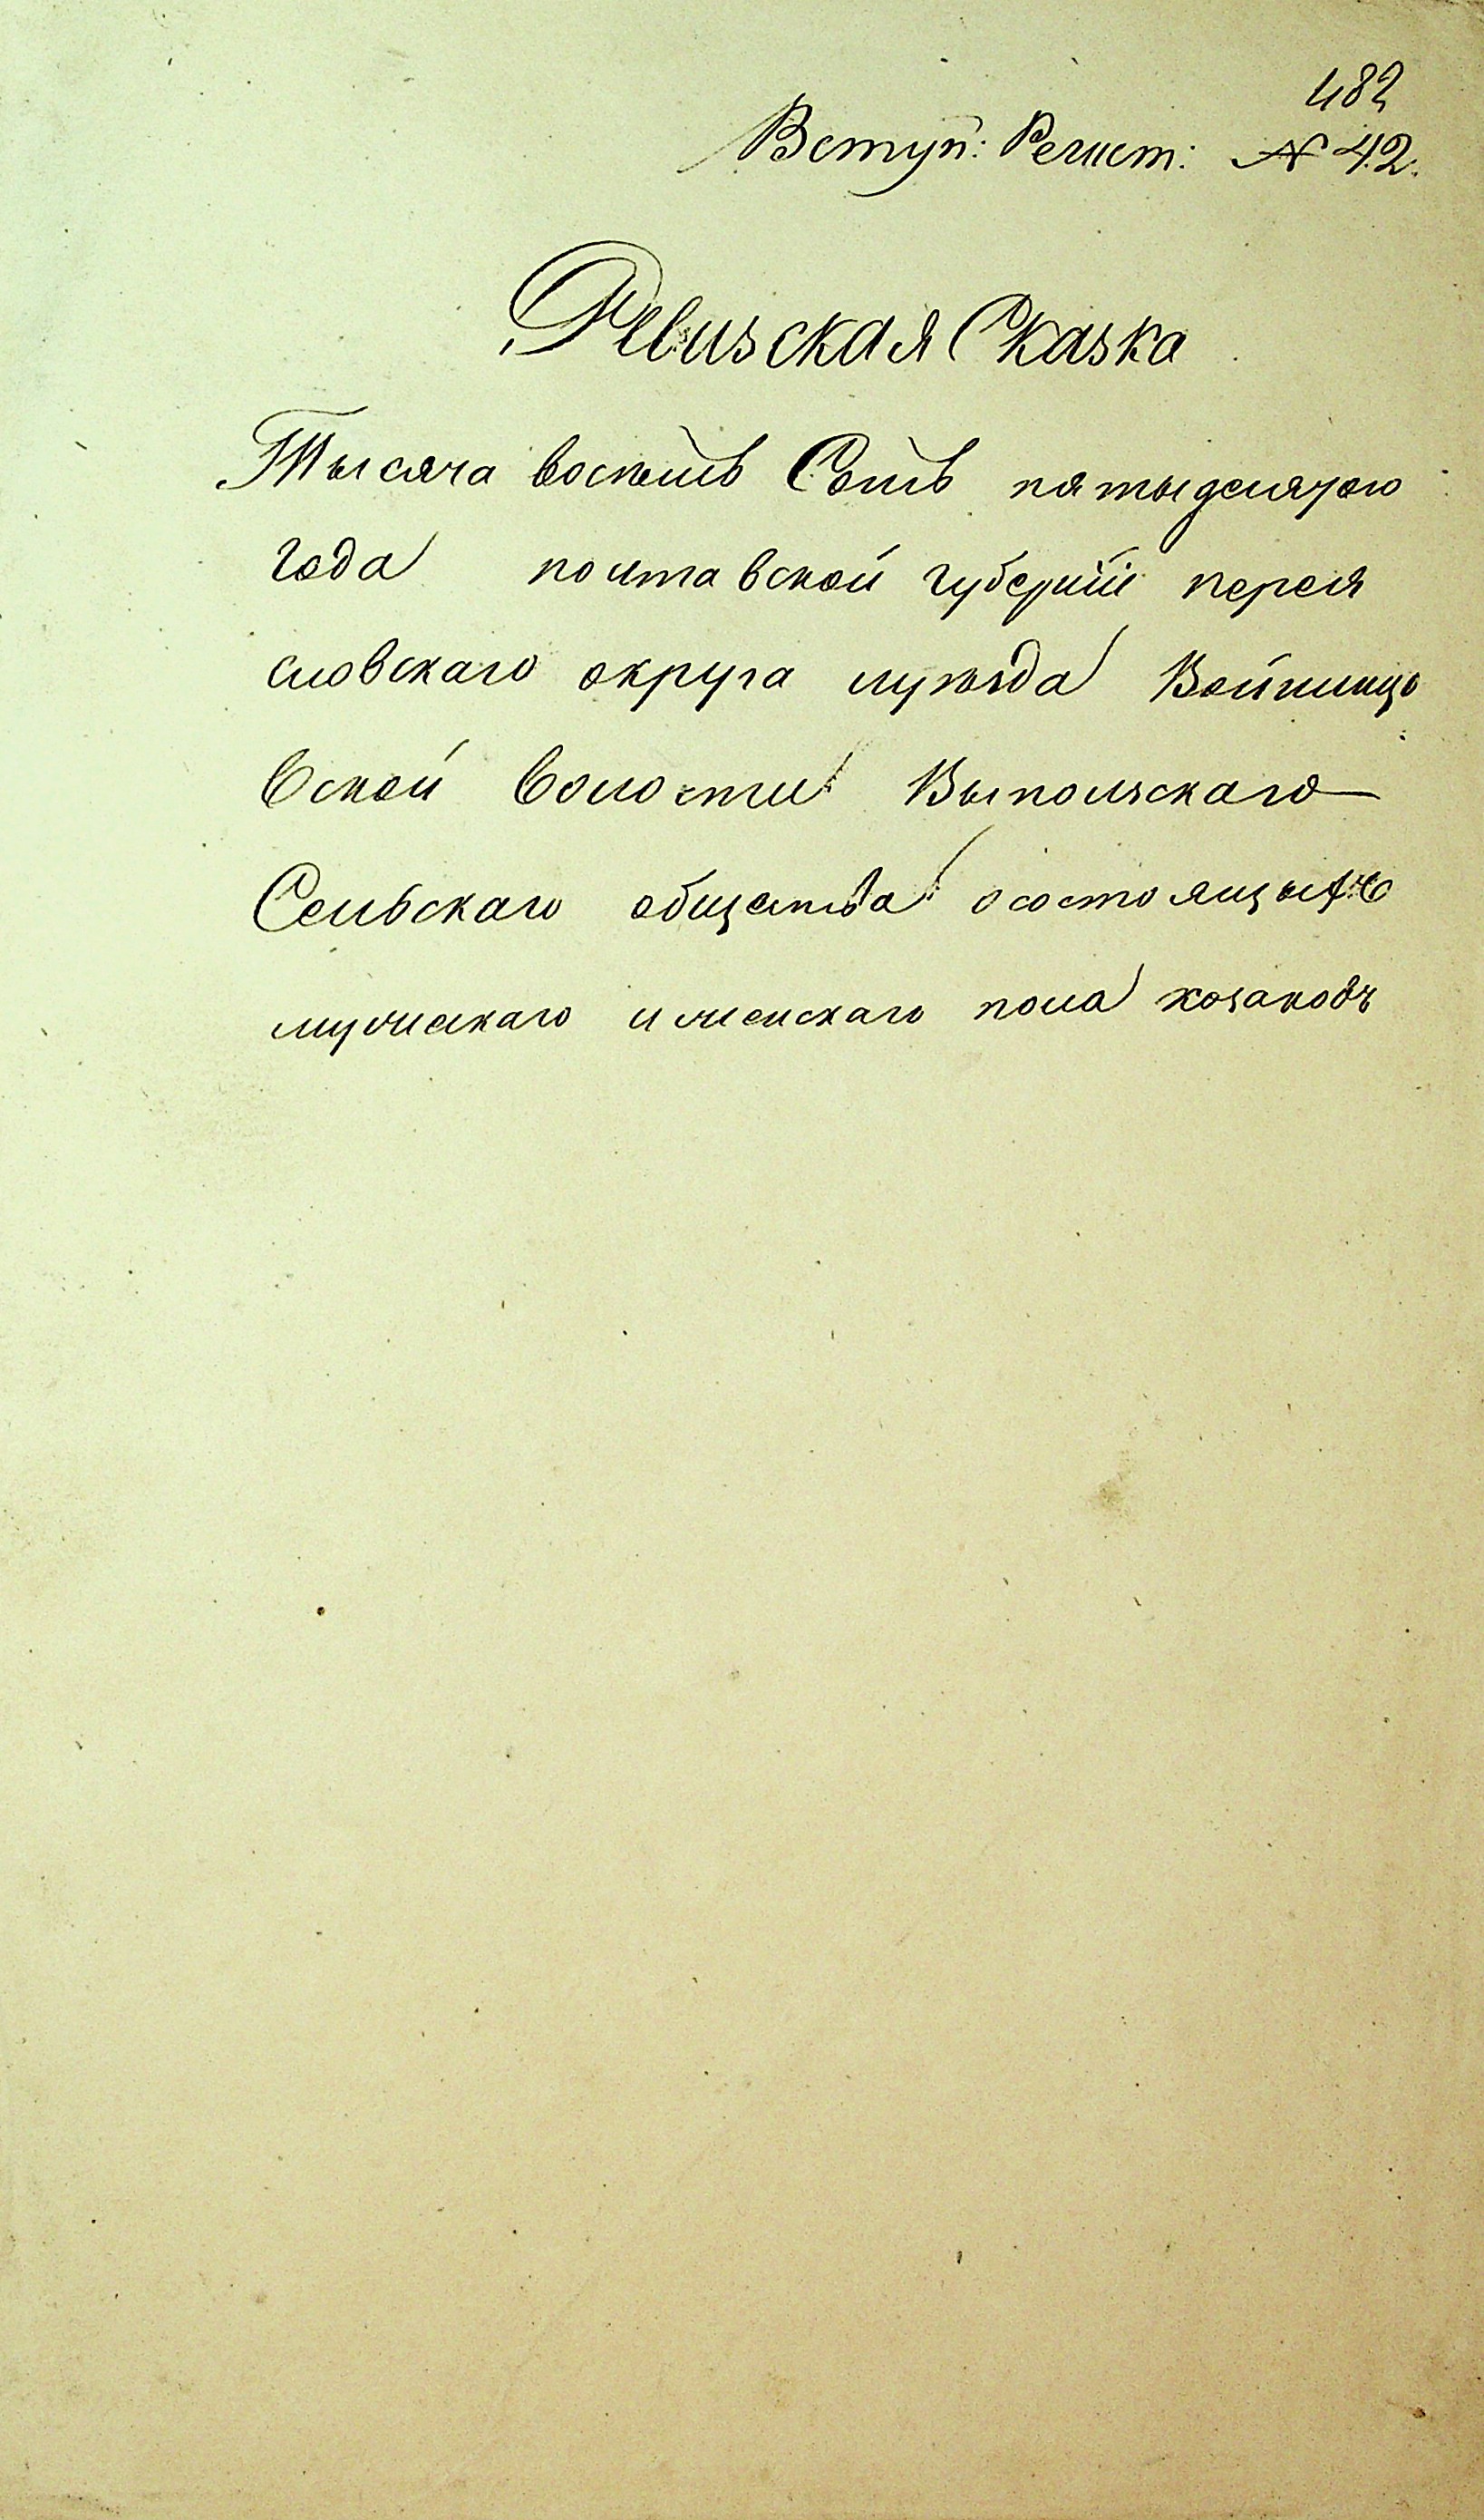 482
Вступ: Регист: № 42.
Ревизская Сказка
Тысяча восемь Сотъ пятыдесятого
года полтавской губерніи перея
словскаго округа иуезда Войтинцо
вской Волости Выползскаго
Сельскаго общества осостоящыхъ
мужескаго и женскаго пола козаковъ